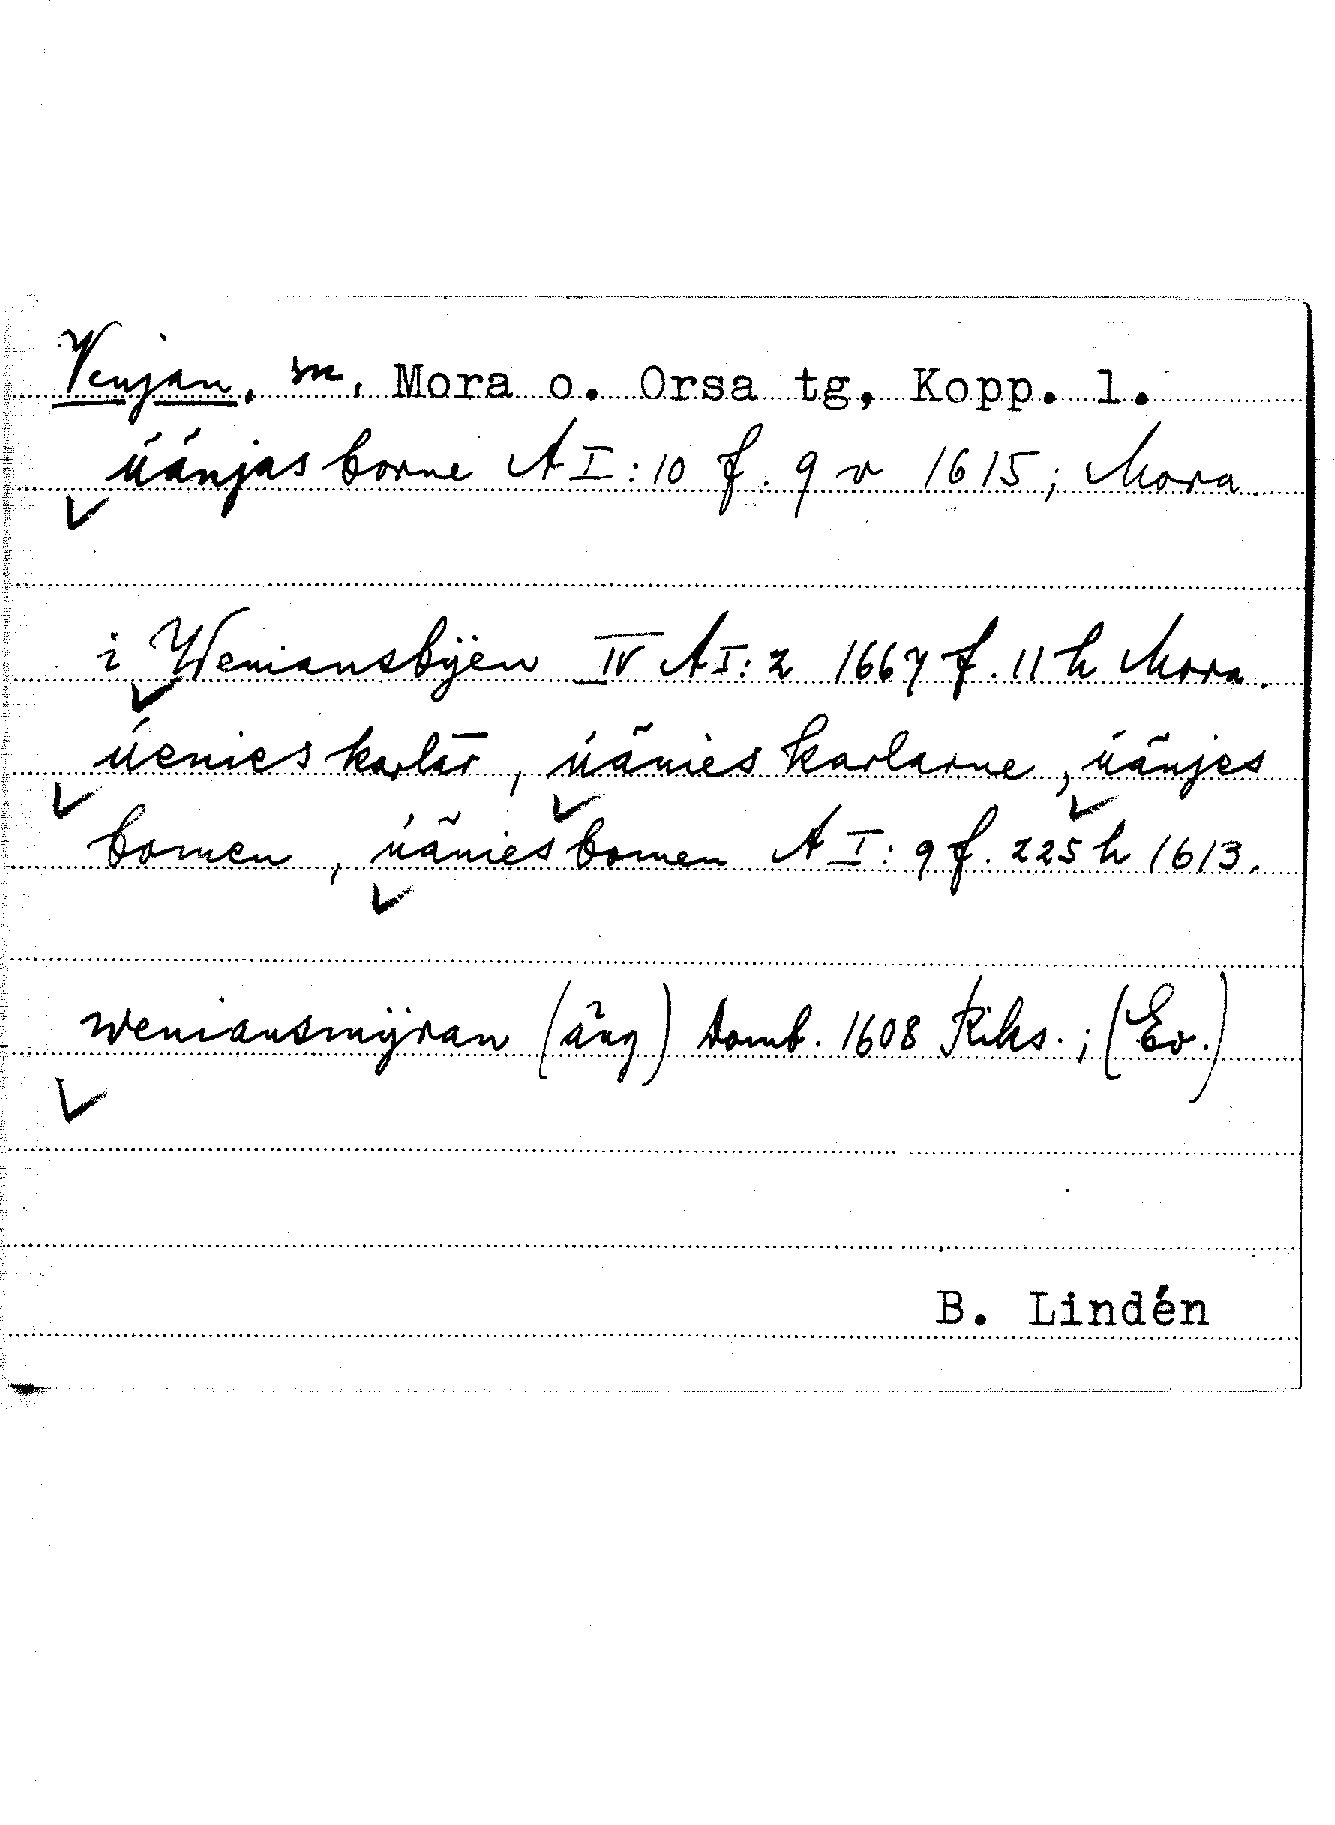 Venjan, sn, Mora o. Orsa tg, Kopp. l.
úänjas borne A I:10 f. 9 v 1615; Mora
i Weniansbÿen IV A I:2 1667 f. 11 h Mora.
úenies karlär, úänies karlarne, úänjes
bomen, úänies bomen A I:9 f. 225 h 1613.
weniansmÿran (äng) Domb. 1608 Riks.; (Ev.)
B. Lindén